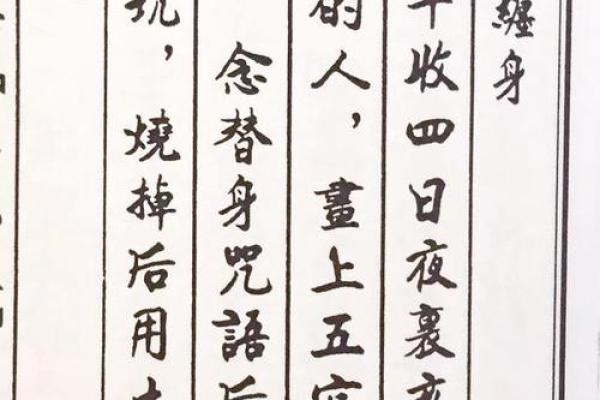 纏身
收四日夜裏
的人，畫上五
念替身咒語后
坑，燒掉后用